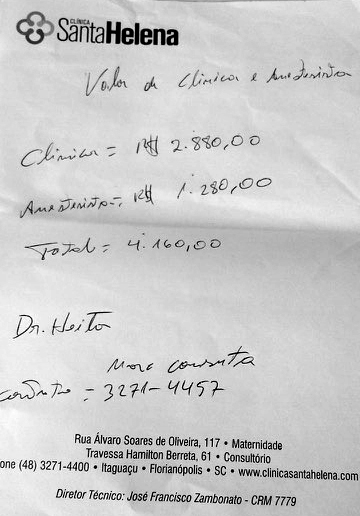 CLÍNICA
SantaHelena
Valor da Clinica e Anestesista
Clinica = R$ 2.880,00
Anestesista = R$ 1.280,00
Total = 4.160,00
Dr. Heitor
consulta
= 3271-4497
Rua Álvaro Soares de Oliveira, 117 • Maternidade
Travessa Hamilton Berreta, 61 • Consultório
one (48) 3271-4400 • Itaguaçu • Florianópolis • SC • www.clinicasantahelena.com
Diretor Técnico: José Francisco Zambonato - CRM 7779